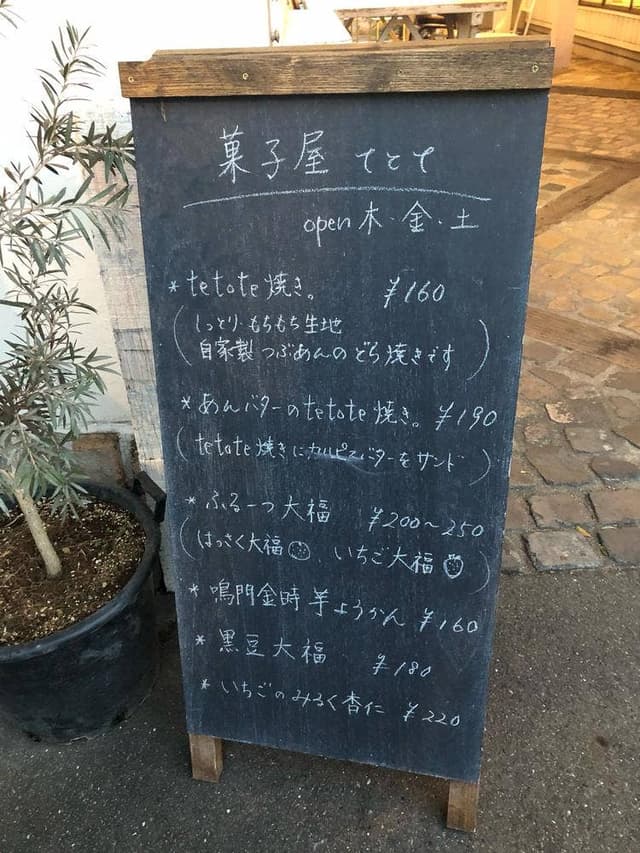 菓子屋 てとて
open 木・金・土
* tetote焼き。 ¥160
(しっとり・もちもち生地
自家製つぶあんのどら焼きです)
* あんバターのtetote焼き。 ¥190
(tetote焼きにカルピスバターをサンド)
* ふるーつ大福 ¥200~250
(はっさく大福、いちご大福)
* 鳴門金時芋ようかん ¥160
* 黒豆大福 ¥180
* いちごのみるく杏仁 ¥220